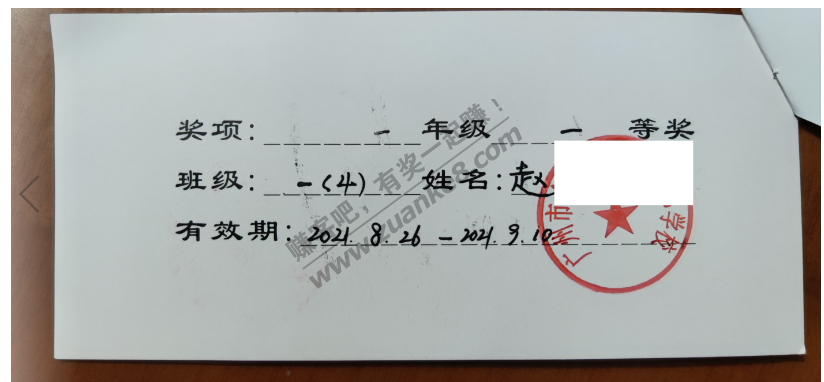 奖项: 一 年级 一 等奖
班级: 一(4) 姓名: 赵
有效期: 2021.8.26 - 2021.9.10
广州市 学校
赚客吧,有奖一起赚!
www.zuanke8.com